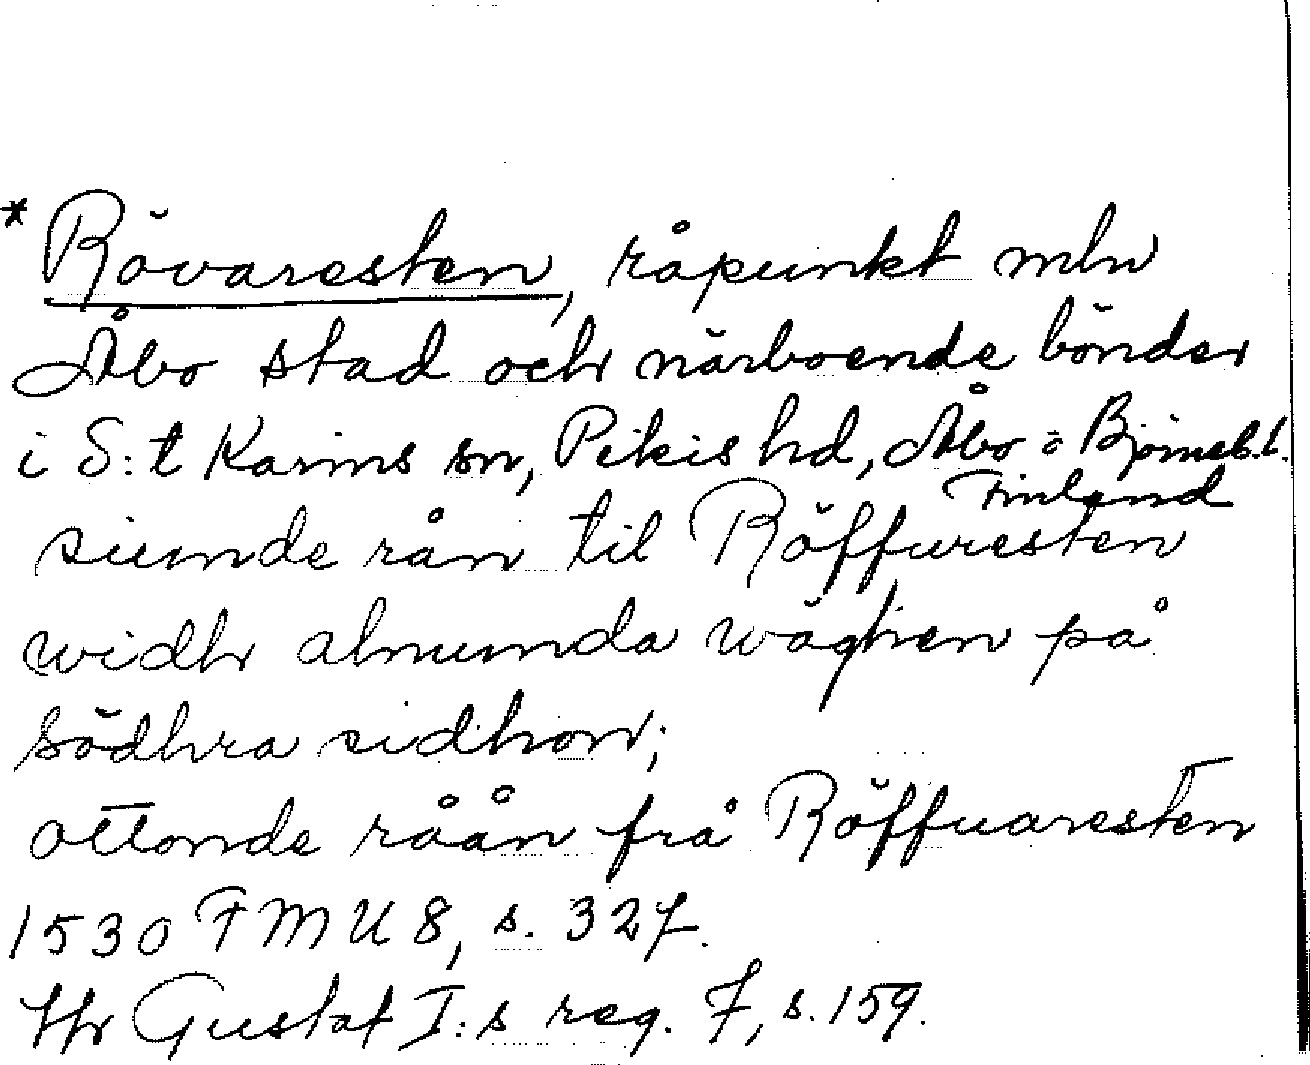 * Rövaresten, råpunkt mln
Åbo stad och närboende bönder
i S:t Karins sn, Pikis hd, Åbo o Björneb. l.
Finland
siunde rån til Röffuresten
widh almmda wäghen på
södhra sidhon;
ottonde råån frå Röffuaresten
1530 FMU 8, s. 327.
Gustaf I:s reg. 7, s. 159.